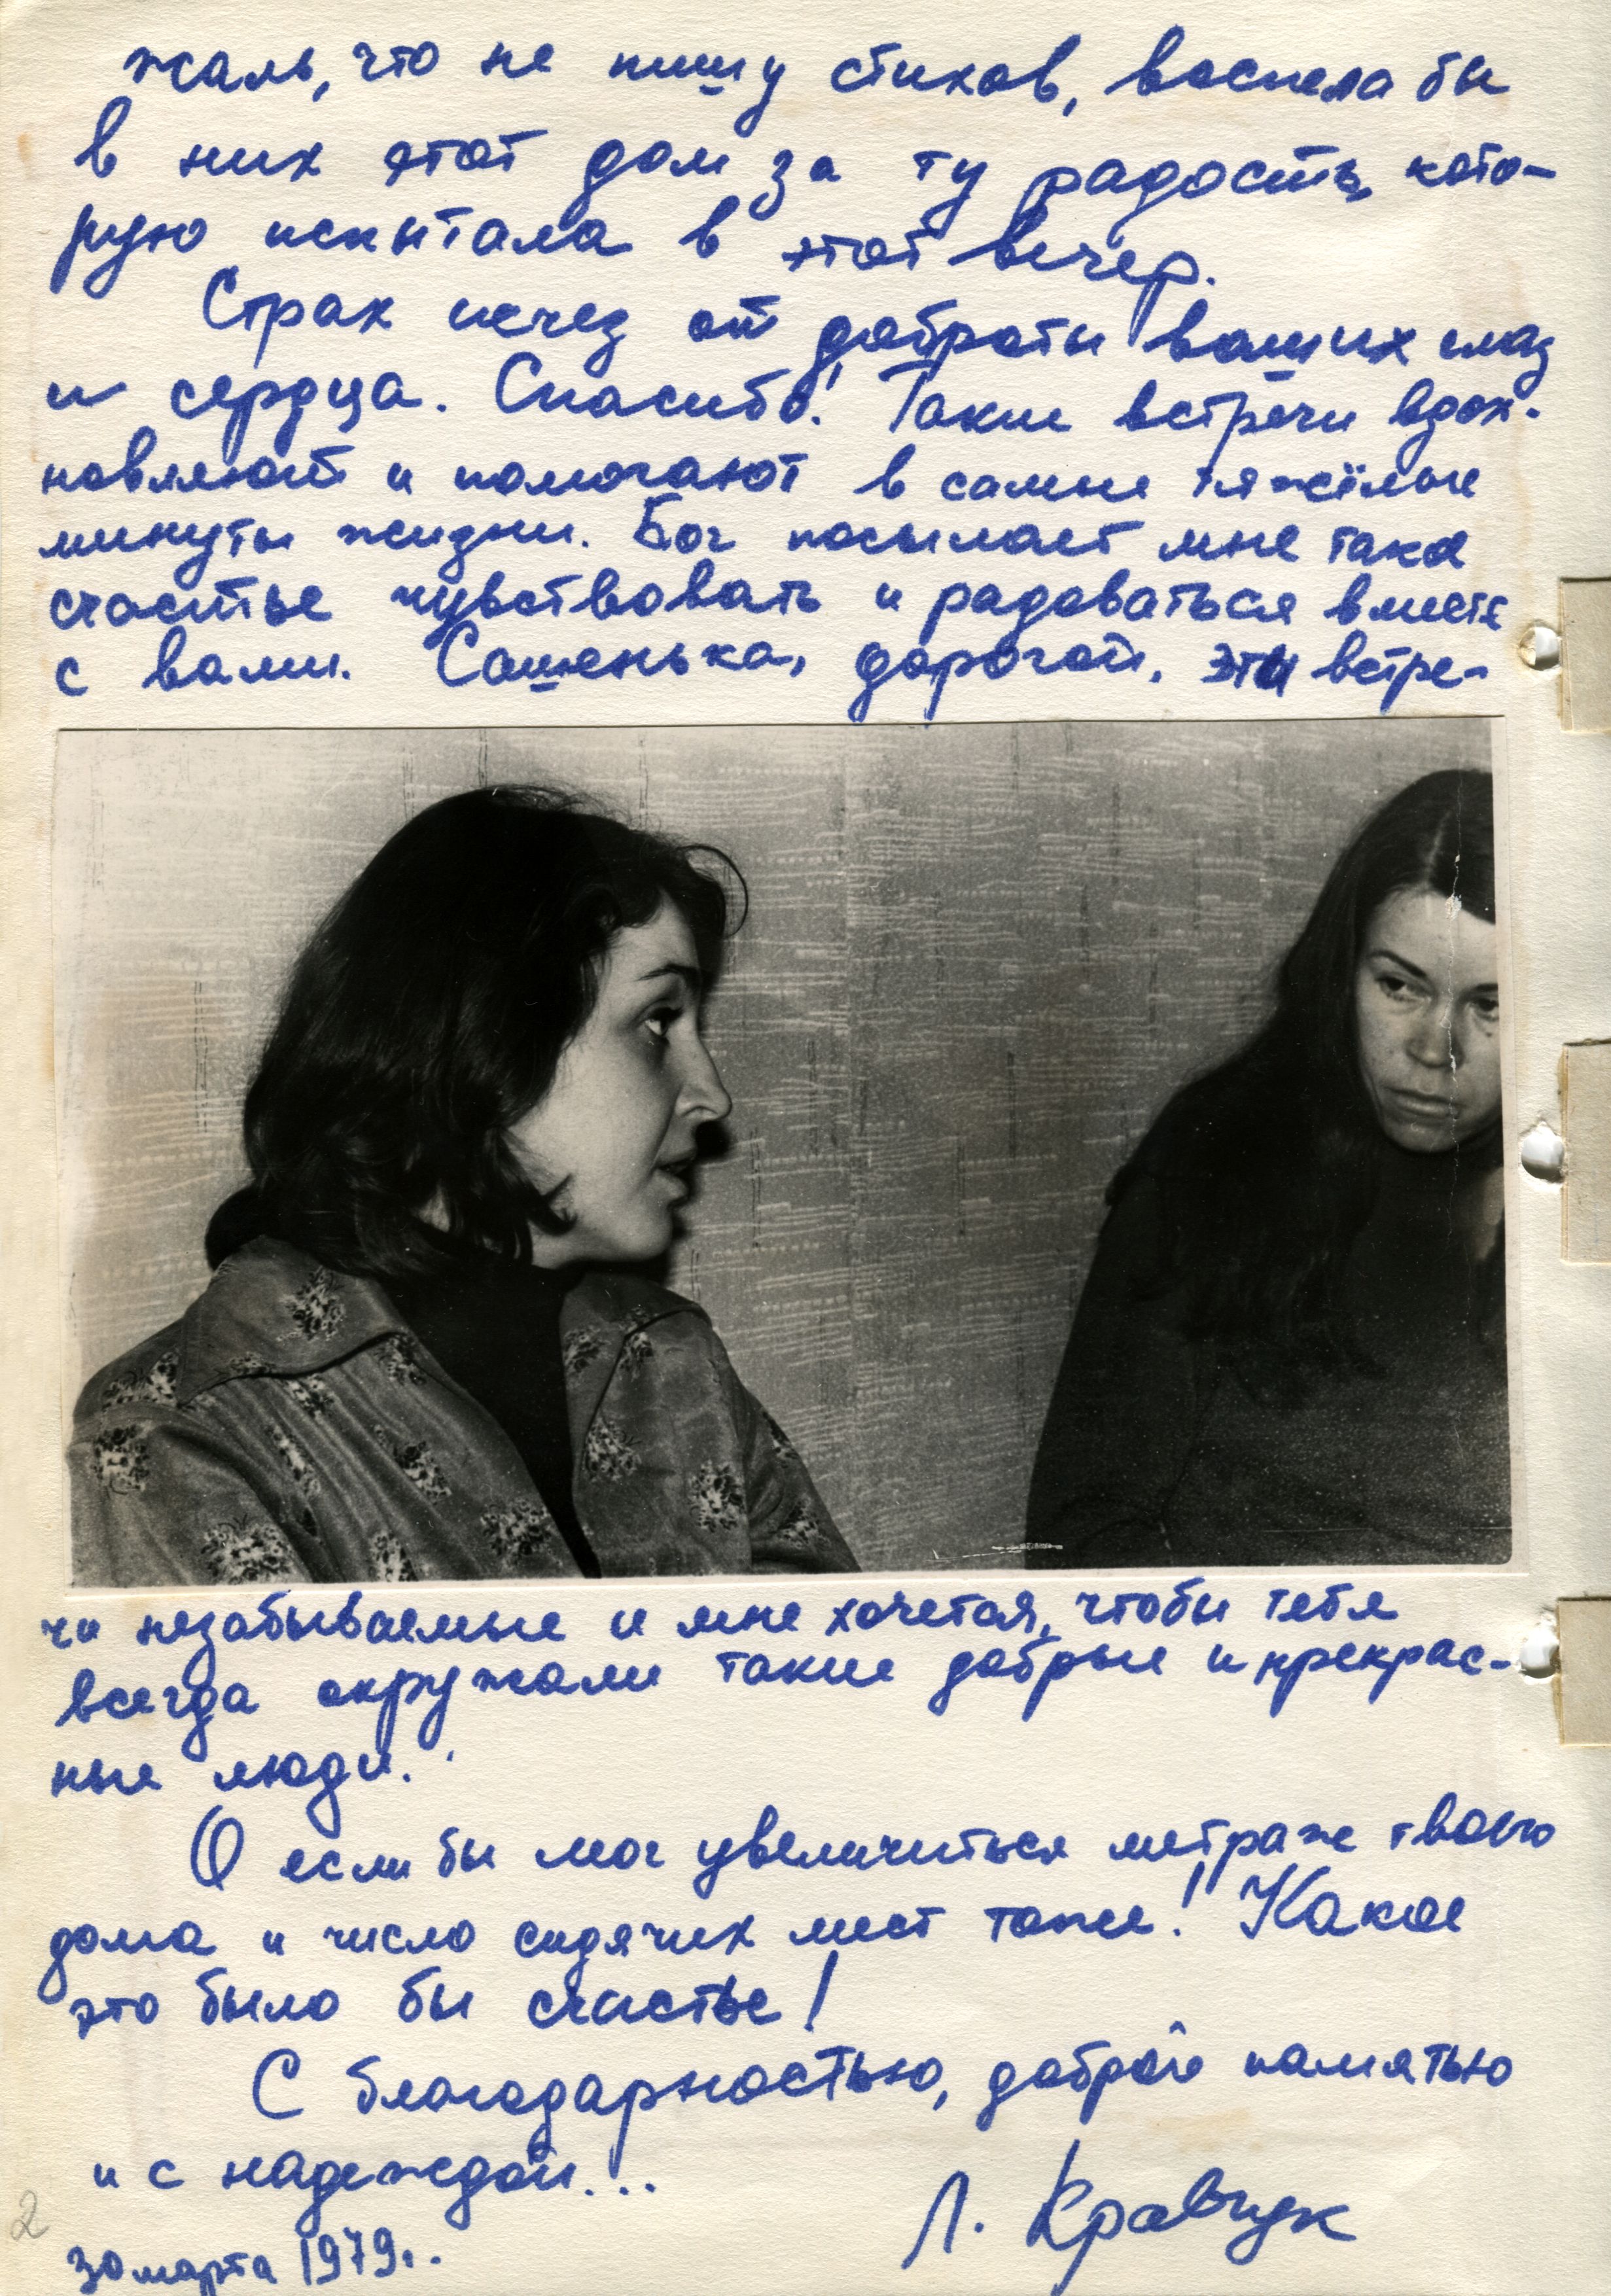 жаль, что не пишу стихов, воспела бы
в них этот дом за ту радость, кото-
рую испытала в этот вечер.
Страх исчез от доброты ваших глаз
и сердца. Спасибо! Такие встречи вдох-
новляют и помогают в самые тяжёлые
минуты жизни. Бог посылает мне такое
счастье чувствовать и радоваться вместе
с вами. Сашенька, дорогой, эти встре-
чи незабываемые и мне хочется, чтобы тебя
всегда окружали такие добрые и прекрас-
ные люди.
О если бы мог увеличиться метраж твоего
дома и число сидячих мест тоже! Какое
это было бы счастье!
С благодарностью, доброй памятью
и с надеждой...
Л. Кравчук
30 марта 1979г.
2